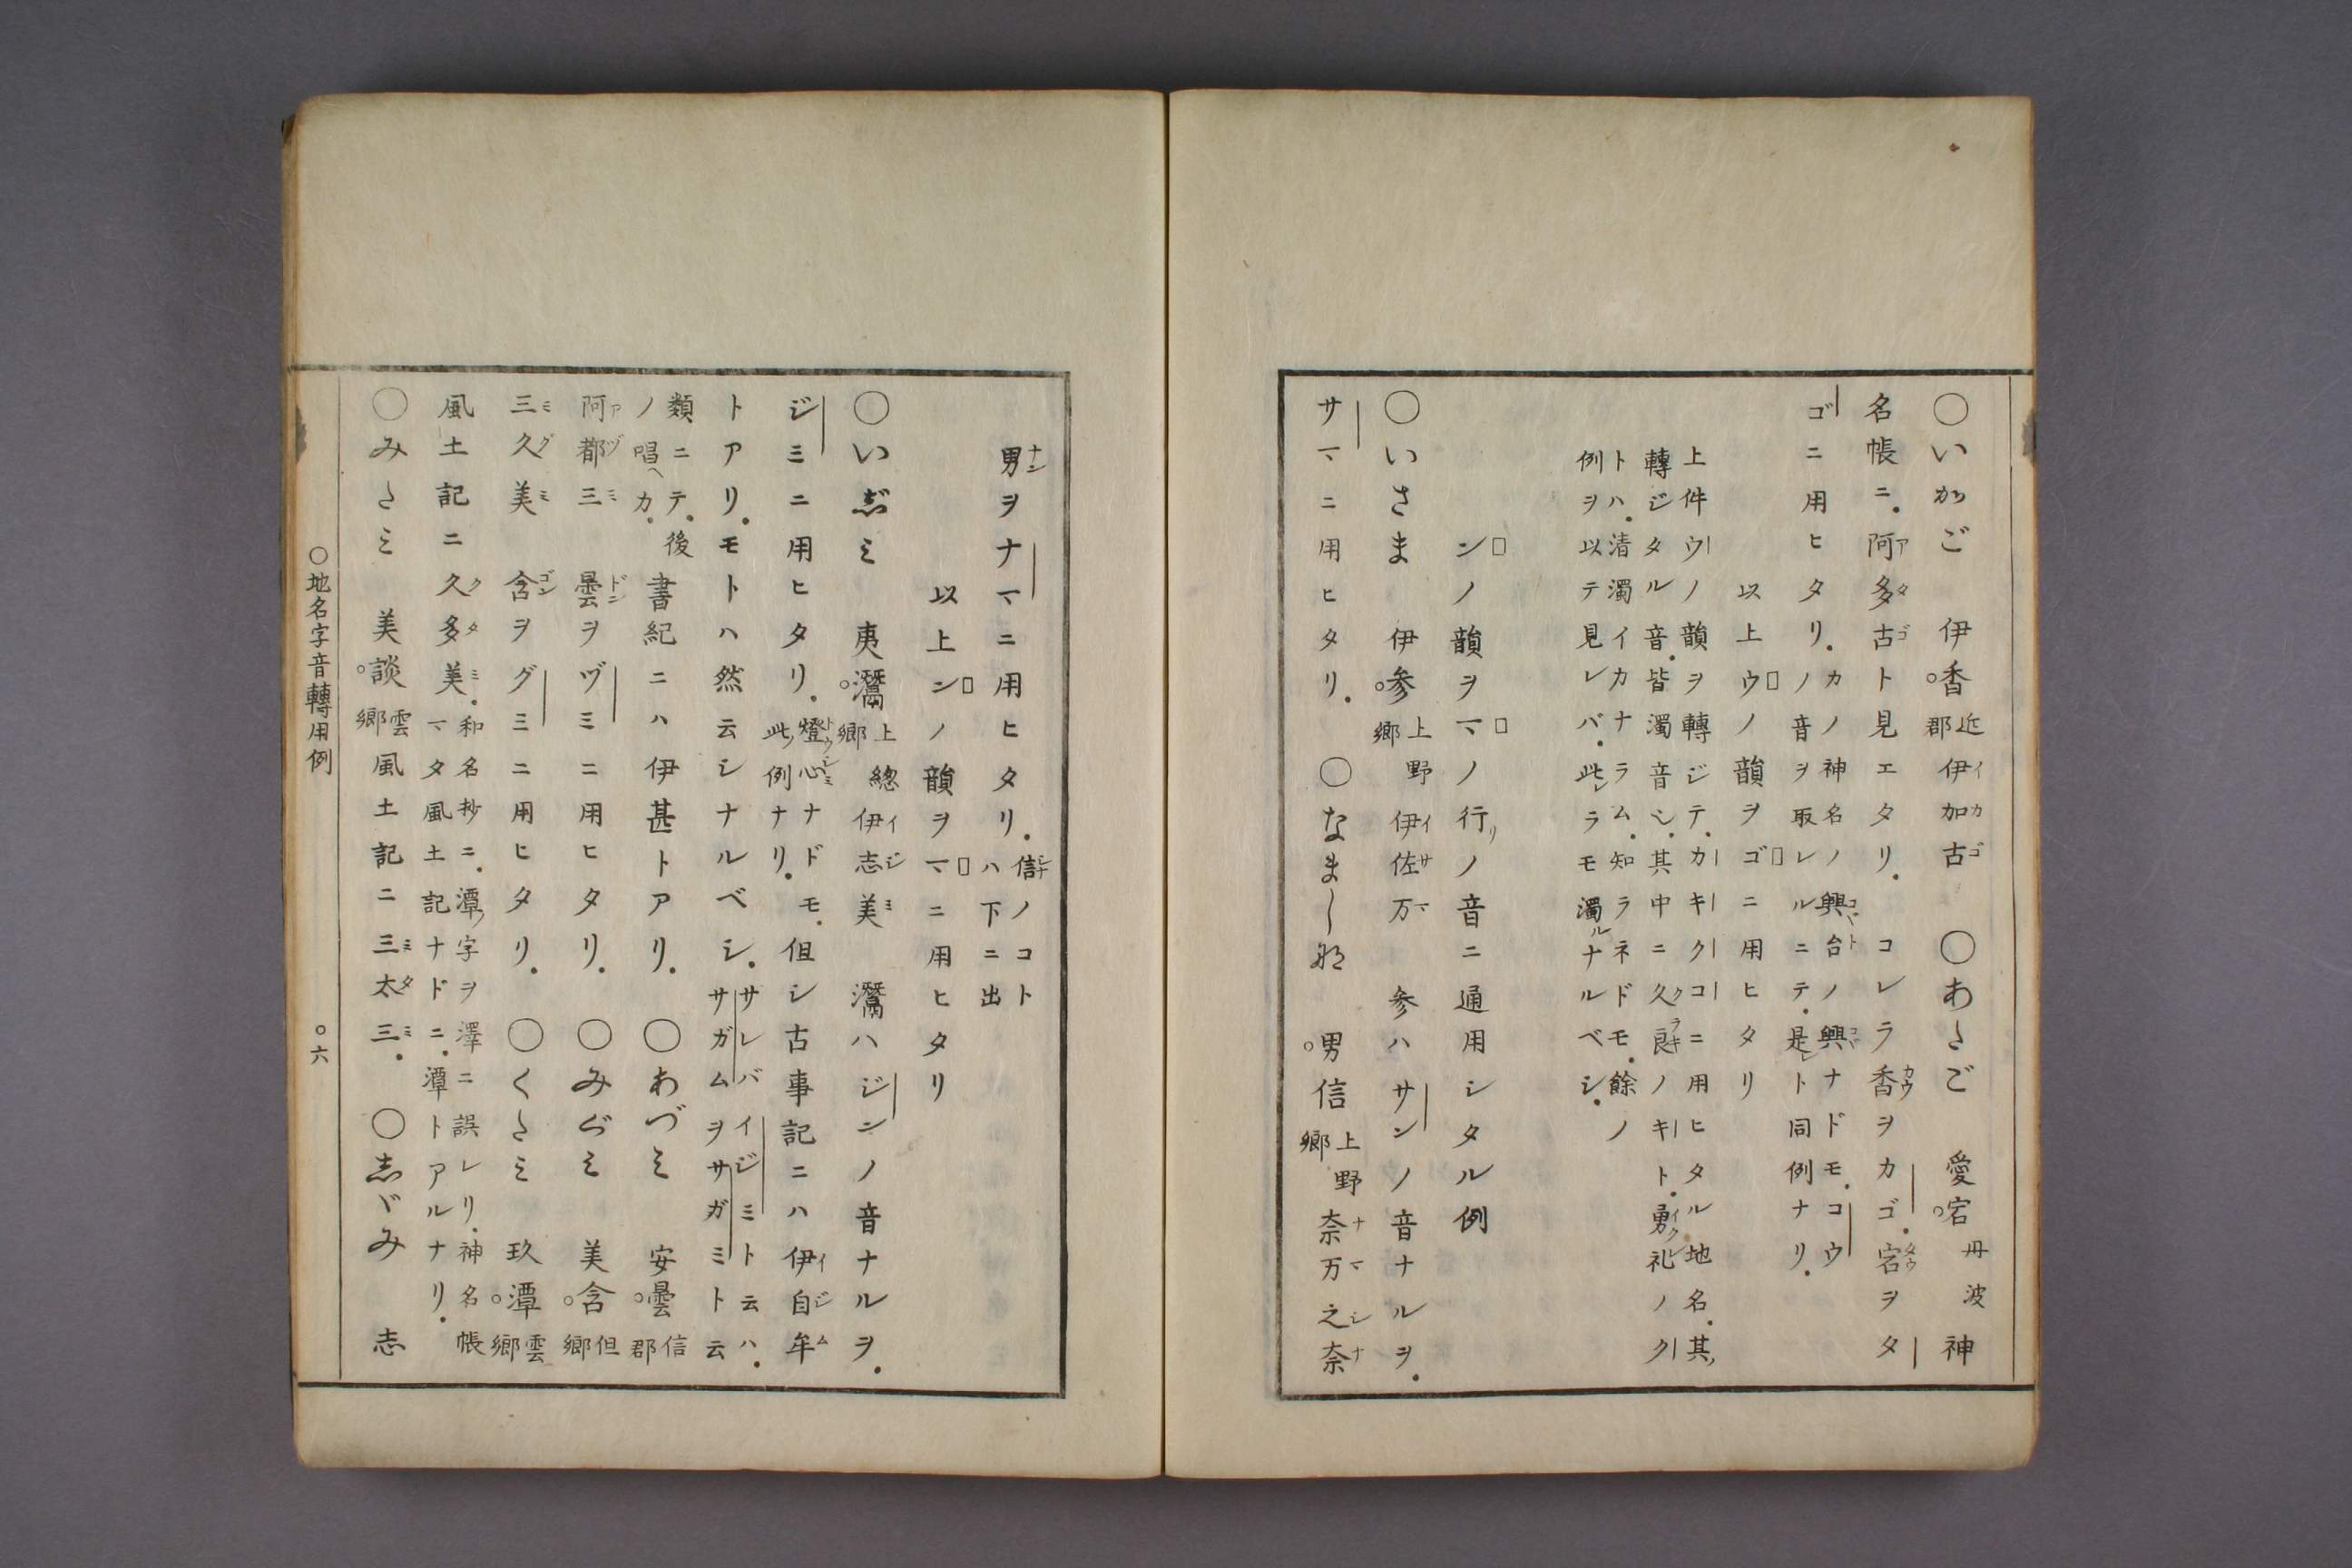 〇いかご　伊香近郡伊加古　〇あたご　愛宕丹波神
名帳ニ阿多古ト見エタリ．コレラ香ヲカゴ．宕ヲタ
ゴニ用ヒタリ．カノ神名ノ興台ノ興ナドモ．コウ
ノ音ヲ取レルニテ．是レト同例ナリ．
以上ウノ韻ヲゴニ用ヒタリ
上件ウノ韻ヲ轉ジテ．カキクコニ用ヒタル地名．其
轉ジタル音．皆濁音シ．其中ニ久良ノキト．勇礼ノク
トハ．清濁イカナラム．知ラネドモ．餘ノ
例ヲ以テ見レバ．此レラモ濁ルナルベシ．
ンノ韻ヲマノ行リノ音ニ通用シタル例
〇いさま　伊参上野郷伊佐万　参ハサンノ音ナルヲ．
サマニ用ヒタリ．　〇なましな　男信上野郷奈万之奈
男ヲナマニ用ヒタリ．信ノコト
ハ下ニ出
以上ンノ韻ヲマニ用ヒタリ
〇いじミ　夷灊上総郷伊志美　灊ハジンノ音ナルヲ．
ジミニ用ヒタリ．燈心ナドモ．
此ノ例ナリ．但シ古事記ニハ伊自牟
トアリ．モトハ然云シナルベシ．サレバイジミト云ハ．
サガムヲサガミト云
類ニテ．後
ノ唱ヘカ．書紀ニハ伊甚トアリ．　〇あづミ　安曇信郡
阿都三　曇ヲヅミニ用ヒタリ．　〇みぐミ　美含但郷
三久美　含ヲグミニ用ヒタリ．　〇くたミ　玖潭雲郷
風土記ニ久多美．和名抄ニ．潭ノ字ヲ澤ニ誤レリ．神名帳
マタ風土記ナドニ．潭トアルナリ．
〇みたミ　美談雲郷風土記ニ三太三．　〇志ゞみ　志
〇地名字音轉用例　〇六